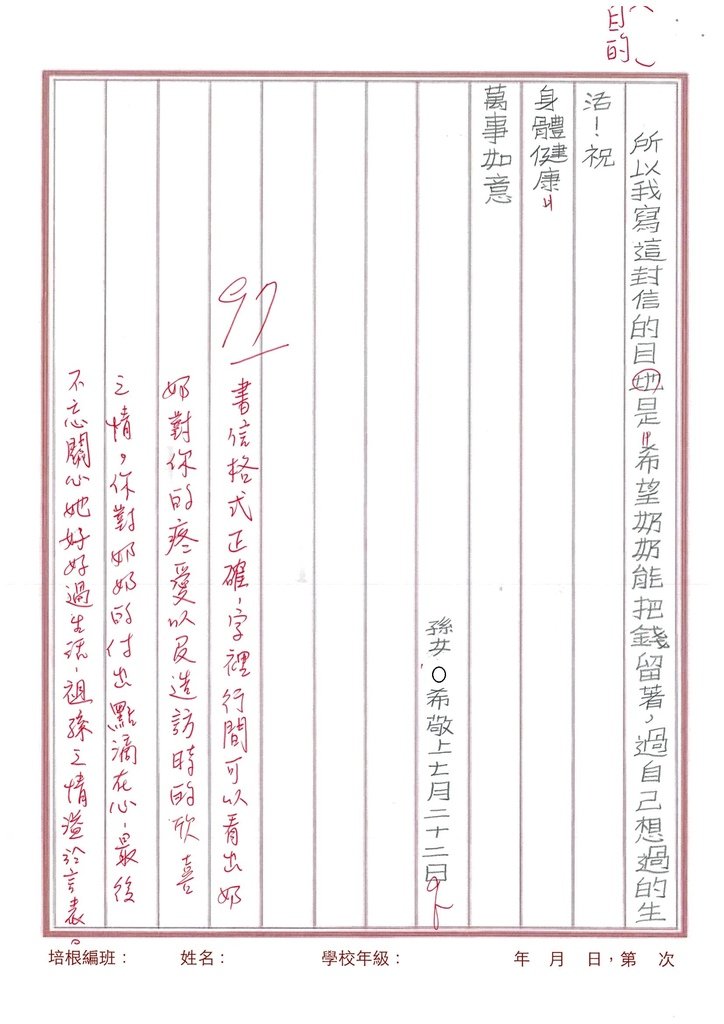 目的
所以我寫這封信的目地是希望奶奶能把錢留著，過自己想過的生
活！祝
身體健康
萬事如意
孫女〇希敬上七月二十二日
97
書信格式正確，字裡行間可以看出奶
奶對你的疼愛以及造訪時的欣喜
之情，你對奶奶的付出點滴在心，最後
不忘關心她好好過生活，祖孫之情溢於言表。
培根編班： 姓名： 學校年級： 年 月 日，第 次